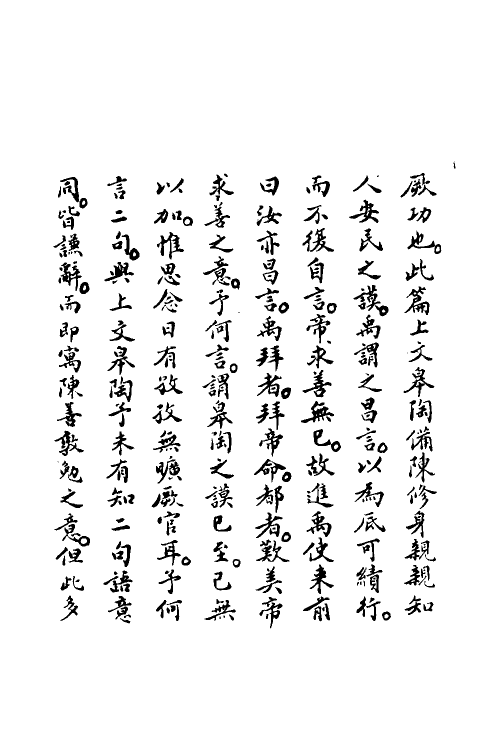 厥功也。此篇上文皋陶備陳修身親親知
人安民之謨。禹謂之昌言。以為底可績行。
而不復自言。帝求善無已。故進禹使来前
曰汝亦昌言。禹拜者。拜帝命。都者。歎美帝
求善之意。予何言。謂皋陶之謨已至。已無
以加。惟思念日有孜孜無曠厥官耳。予何
言二句。與上文皋陶予未有知二句語意
同。皆謙辭。而即寓陳善敦勉之意。但此多